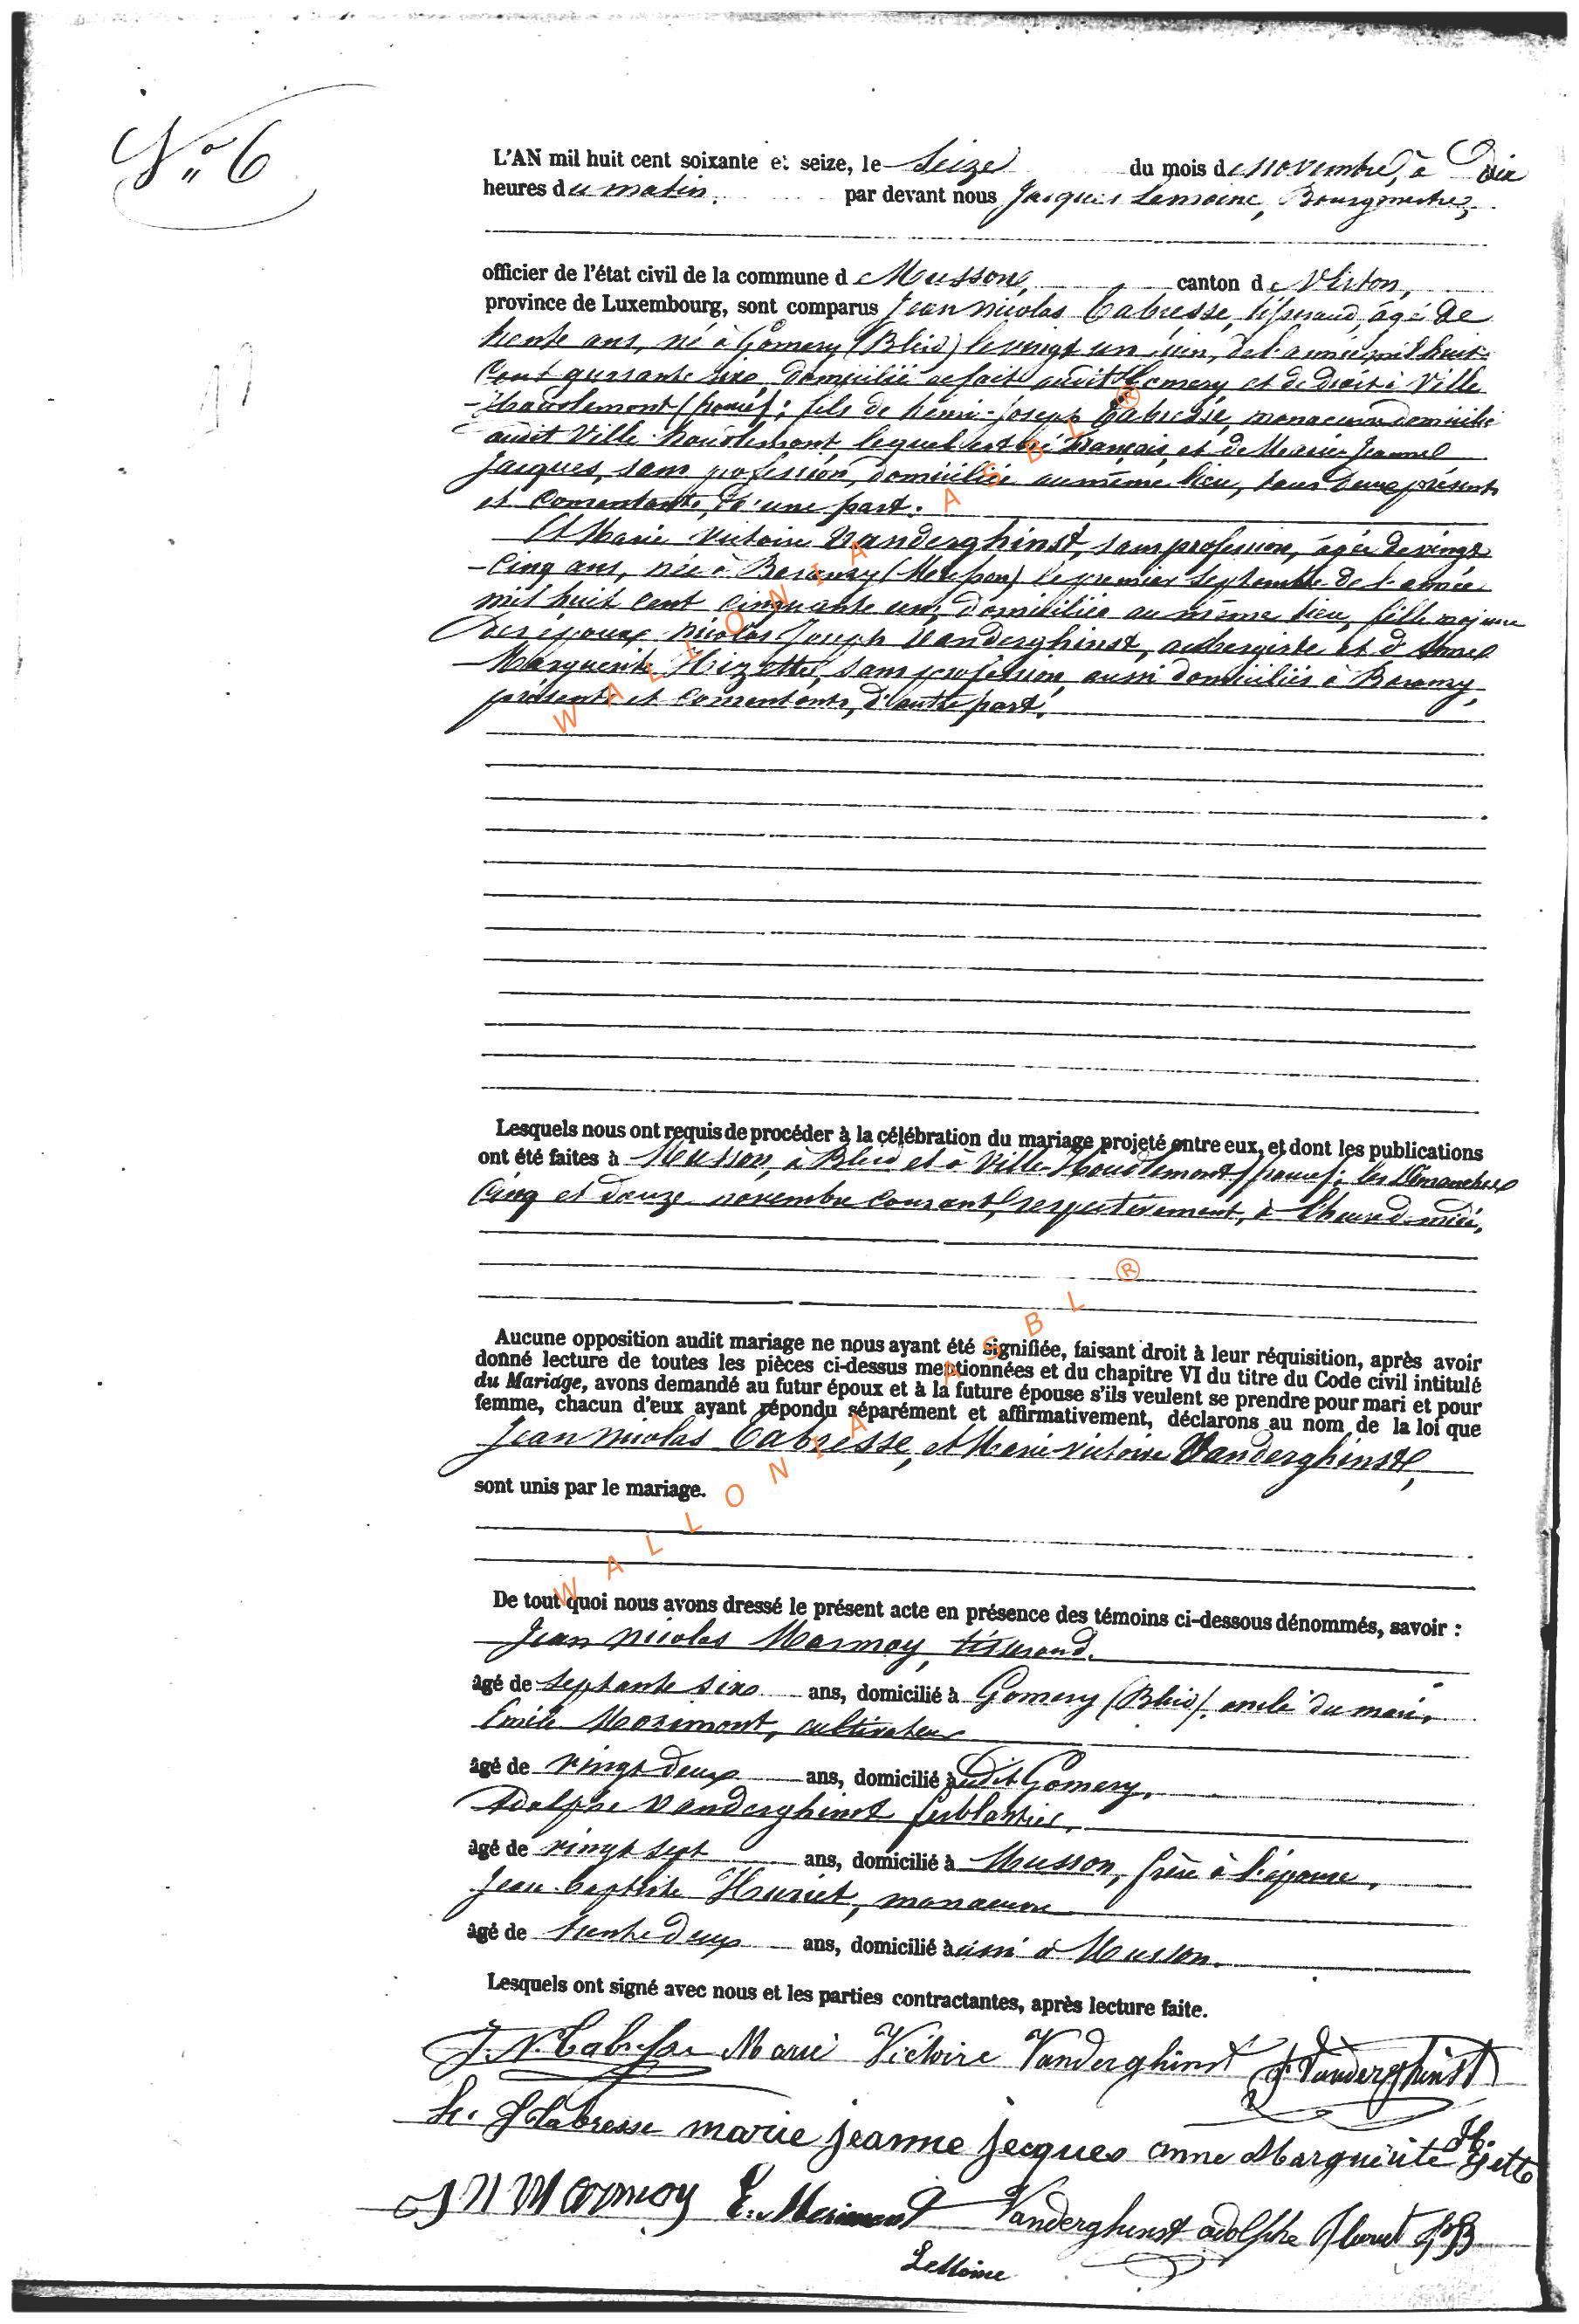 N° 6
L'AN mil huit cent soixante et seize, le Seize du mois de novembre, à Dix
heures du matin, par devant nous Jacques Lemoine, Bourgmestre,
officier de l'état civil de la commune de Musson, canton de Virton,
province de Luxembourg, sont comparus Jean Nicolas Cabresse, tisserand, âgé de
trente ans, né à Gomery (Bleid) le vingt un juin, de l'année mil huit
Cent quarante six, domicilié de fait audit Gomery et de droit à Ville
-Houdlemont (france); fils de henri-Joseph Cabresse, manoeuvre domicilié
audit Ville-houdlemont, lequel est né Français, et de Marie-Jeanne
Jacques, sans profession, domiciliée au même lieu, tous deux présents
et consentants, d'une part.
Et Marie Victoire Vanderghinst, sans profession, âgée de vingt
-Cinq ans, née à Baranzy (Musson) le premier Septembre de l'année
mil huit cent cinquante un, domiciliée au même lieu, fille majeure
des époux Nicolas Joseph Vanderghinst, aubergiste et d'Anne
Marguerite Hizette, sans profession, aussi domiciliés à Baranzy,
présents et consentants, d'autre part.
Lesquels nous ont requis de procéder à la célébration du mariage projeté entre eux, et dont les publications
ont été faites à Musson, à Bleid et à Ville-Houdlemont (france); les Dimanches
Cinq et douze novembre courant, respectivement, à l'heure de midi,
Aucune opposition audit mariage ne nous ayant été signifiée, faisant droit à leur réquisition, après avoir
donné lecture de toutes les pièces ci-dessus mentionnées et du chapitre VI du titre du Code civil intitulé
du Mariage, avons demandé au futur époux et à la future épouse s'ils veulent se prendre pour mari et pour
femme, chacun d'eux ayant répondu séparément et affirmativement, déclarons au nom de la loi que
Jean Nicolas Cabresse, et Marie Victoire Vanderghinst,
sont unis par le mariage.
De tout quoi nous avons dressé le présent acte en présence des témoins ci-dessous dénommés, savoir :
Jean Nicolas Marmoy, tisserand.
âgé de septante six ans, domicilié à Gomery (Bleid). oncle du mari,
Emile Morimont, cultivateur
âgé de vingt deux ans, domicilié audit Gomery,
Adolphe Vanderghinst ferblantier,
âgé de vingt sept ans, domicilié à Musson, frère à l'épouse,
Jean-baptiste Huriet, manoeuvre
âgé de trente deux ans, domicilié aussi à Musson.
Lesquels ont signé avec nous et les parties contractantes, après lecture faite.
J. N. Cabresse Marie Victoire Vanderghinst Vanderghinst
h. J Cabresse marie jeanne jacques anne Marguerite Hizette
J N Marmoy E. Morimont Vanderghinst adolphe Huriet JB
Lemoine
WALLONIA ASBL ®
WALLONIA ASBL ®